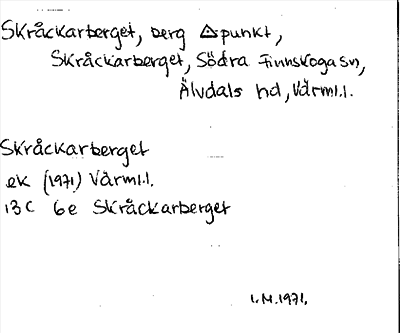 Skråckarberget, berg △punkt,
Skråckarberget, Södra Finnskoga sn,
Älvdals hd, Värml.l.
Skråckarberget
ek (1971) Värml.l.
13C 6e Skråckarberget
I.M.1971.